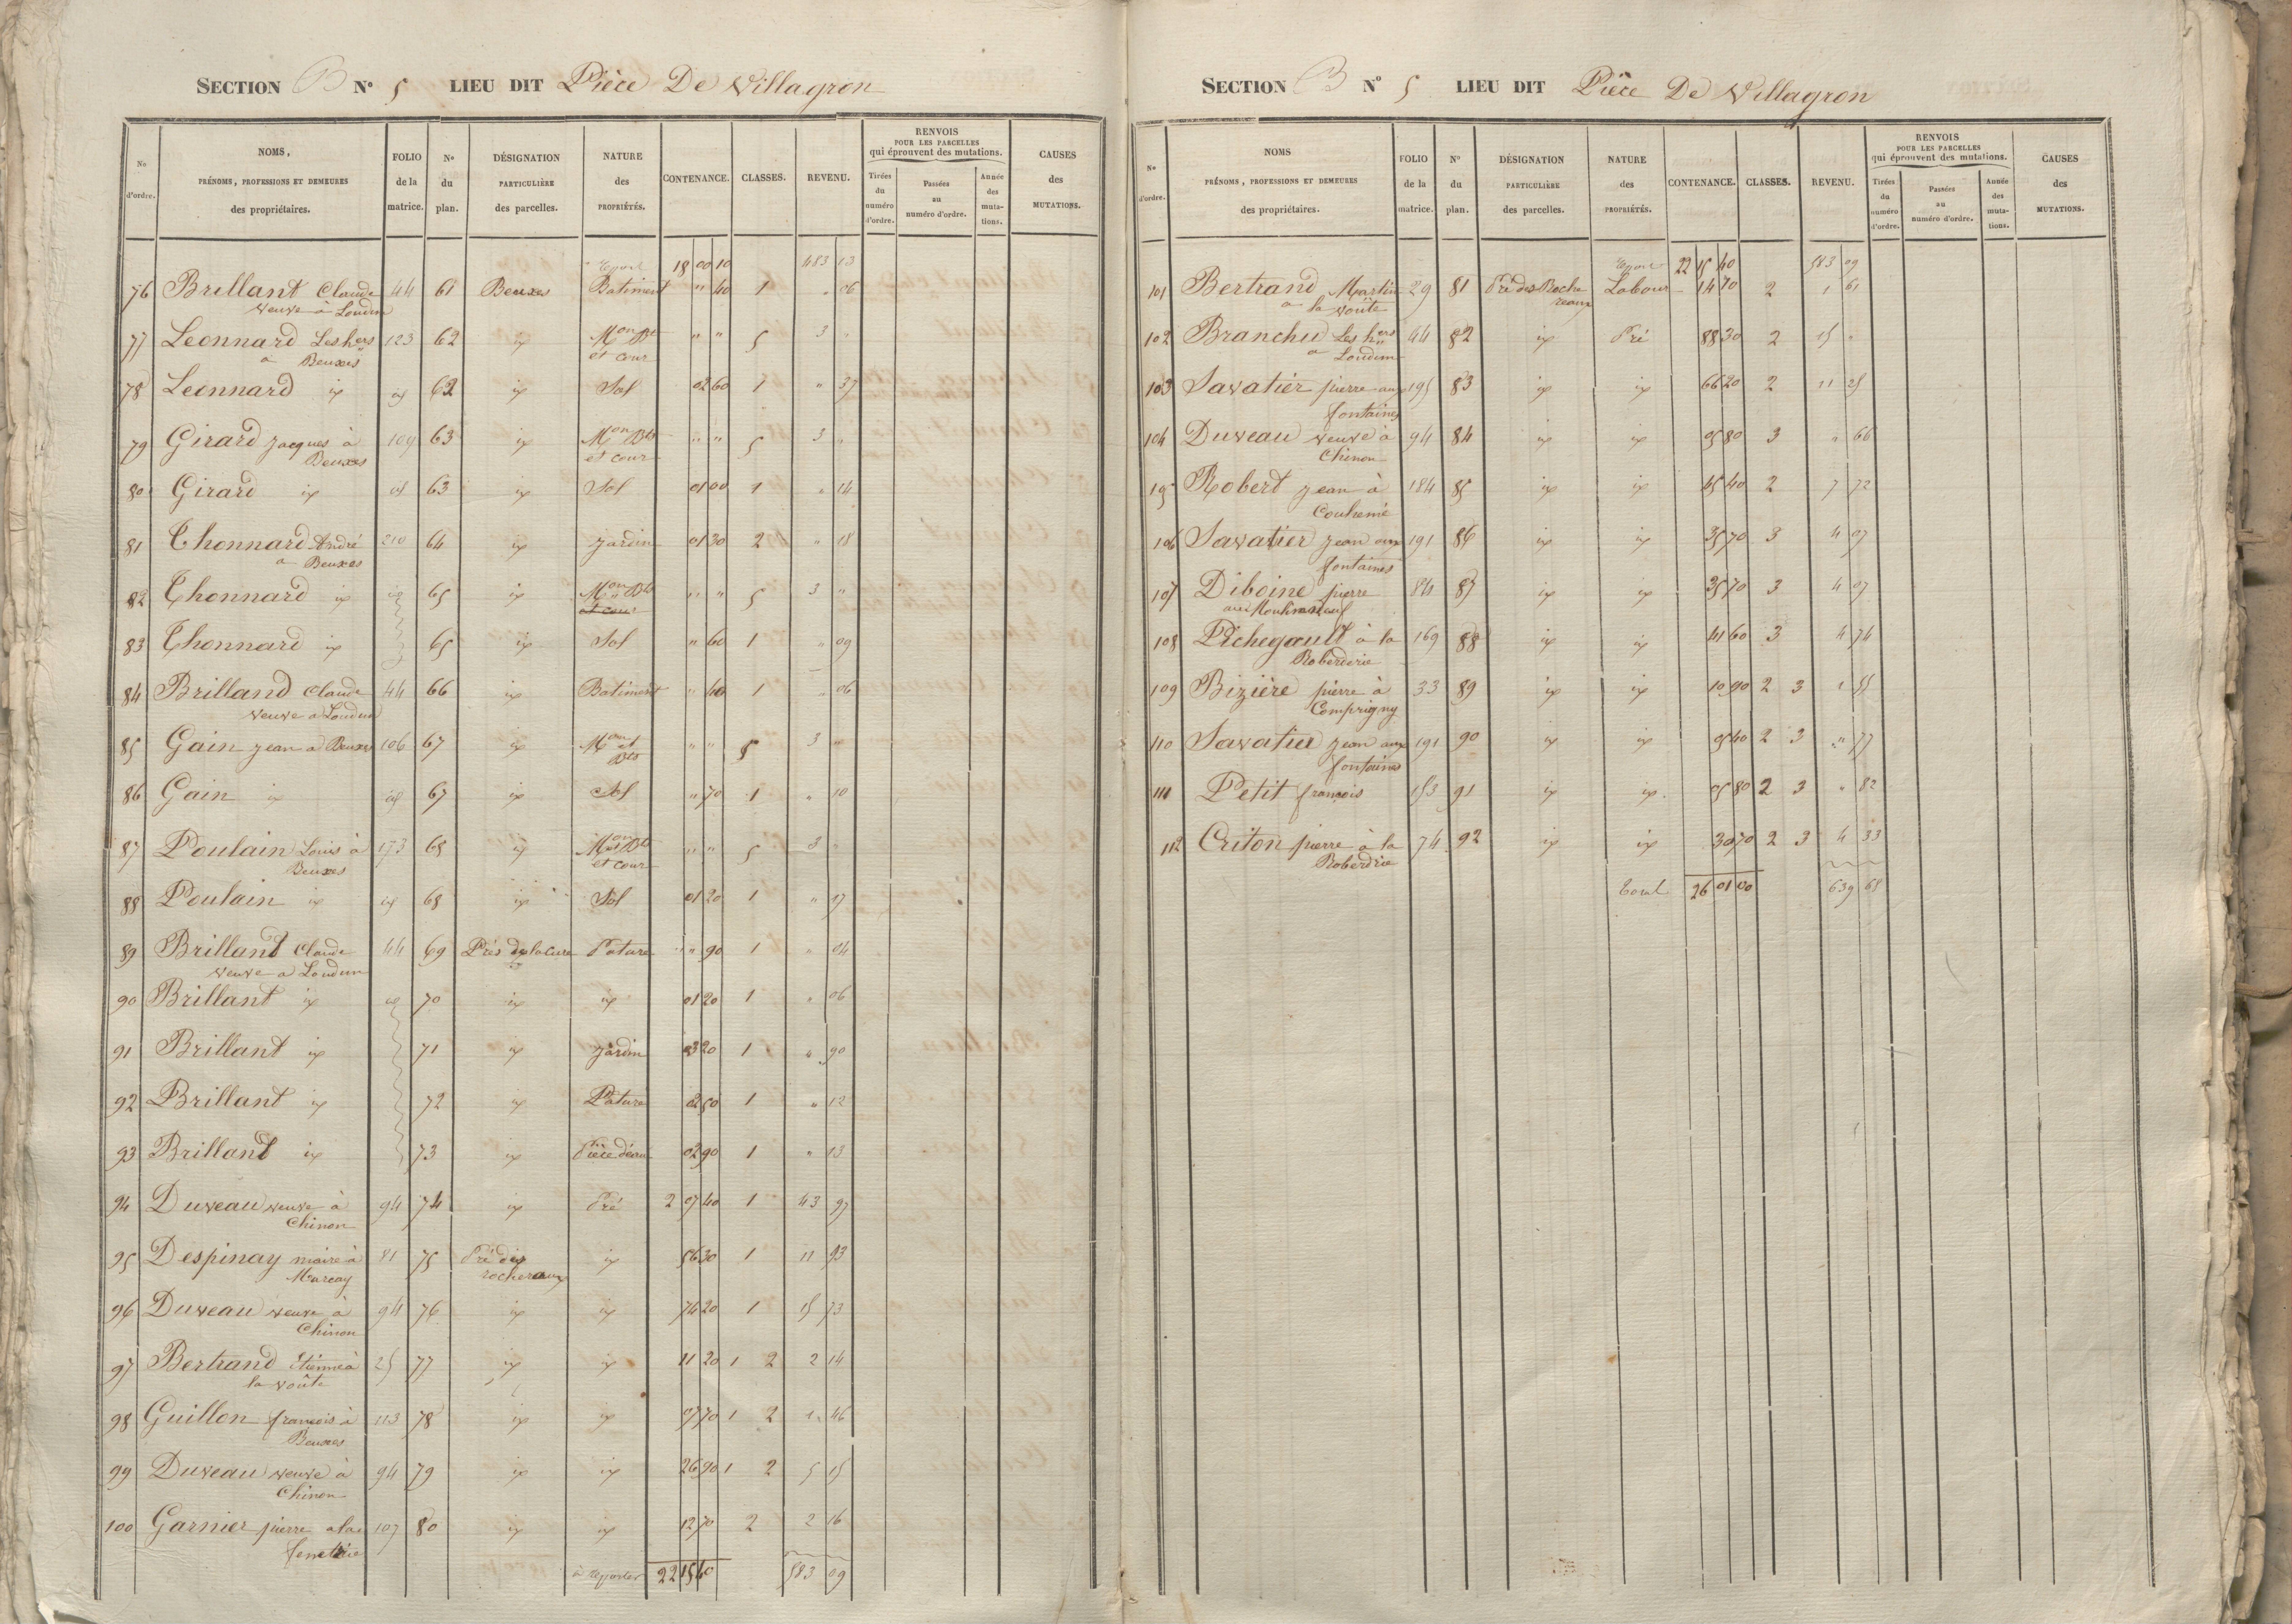 SECTION B N° 5 LIEU DIT Pièce De Villagron
N° d'ordre. NOMS, PRÉNOMS, PROFESSIONS ET DEMEURES des propriétaires. FOLIO de la matrice. N° du plan. DÉSIGNATION PARTICULIÈRE des parcelles. NATURE des PROPRIÉTÉS. CONTENANCE. CLASSES. REVENU. RENVOIS POUR LES PARCELLES qui éprouvent des mutations. Tirées du numéro d'ordre. Passées au numéro d'ordre. Année des mutations. CAUSES des MUTATIONS.
Report 18 00 10 483 13
76 Brillant Claude 44 61 Beuxes Batiment " 40 1 " 06
veuve à Loudun
77 Leonnard Les hers 123 62 id Mon Bt " " 5 3 "
a Beuxes et cour
78 Leonnard id id 62 id Sol 02 60 1 " 37
79 Girard jacques à 109 63 id Mon Bts " " 5 3 "
Beuxes et cour
80 Girard id id 63 id Sol 01 00 1 " 14
81 Thonnard André 210 64 id jardin 01 30 2 " 18
a Beuxes
82 Thonnard id id 65 id Mon Bts " " 5 3 "
et cour
83 Thonnard id 65 id Sol " 60 1 " 09
84 Brilland Claude 44 66 id Batiment " 40 1 " 06
veuve a Loudun
85 Gain jean a Beuxes 106 67 id Mon et " " 5 3 "
Bts
86 Gain id id 67 id Sol " 70 1 " 10
87 Poulain Louis à 173 68 id Mon Bts " " 5 3 "
Beuxes et cour
88 Poulain id id 68 id Sol 01 20 1 " 17
89 Brilland Claude 44 69 Prés de la cure Pature " " 90 1 " 04
veuve a Loudun
90 Brillant id id 70 id id 01 20 1 " 06
91 Brillant id 71 id jardin 03 20 1 " 90
92 Brillant id 72 id Pature 02 50 1 " 12
93 Brilland id 73 id Pièce d'eau 02 90 1 " 13
94 Duveau veuve à 94 74 id Pré 2 07 40 1 43 97
Chinon
95 Despinay maire à 81 75 Pré des id 56 30 1 11 93
Marcay rochereaux
96 Duveau veuve à 94 76 id id 74 20 1 15 73
Chinon
97 Bertrand Etienne à 25 77 id id 11 20 1 2 2 14
la voûte
98 Guillon francois à 113 78 id id 07 70 1 2 1 46
Beuxes
99 Duveau veuve à 94 79 id id 26 90 1 2 5 15
Chinon
100 Garnier pierre a la 107 80 id id 12 70 2 2 16
à reporter 22 15 40 583 09
SECTION B N° 5 LIEU DIT Pièce De Villagron
N° d'ordre. NOMS PRÉNOMS, PROFESSIONS ET DEMEURES des propriétaires. FOLIO de la matrice. N° du plan. DÉSIGNATION PARTICULIÈRE des parcelles. NATURE des PROPRIÉTÉS. CONTENANCE. CLASSES. REVENU. RENVOIS POUR LES PARCELLES qui éprouvent des mutations. Tirées du numéro d'ordre. Passées au numéro d'ordre. Année des mutations. CAUSES des MUTATIONS.
Report 22 15 40 583 09
101 Bertrand Martin 29 81 Pré des Roche Labour 14 70 2 1 61
a la voûte reaux
102 Branchu Les hers 44 82 id Pré 88 30 2 15 "
a Loudun
103 Savatier pierre aux 195 83 id id 66 20 2 11 25
fontaines
104 Duveau veuve à 94 84 id id 05 80 3 " 66
Chinon
105 Robert jean à 184 85 id id 45 40 2 7 72
106 Savatier jean aux 191 86 id id 35 70 3 4 07
fontaines
107 Diboine pierre 84 87 id id 35 70 3 4 07
108 Pichegault à la 169 88 id id 41 60 3 4 74
Roberderie
109 Bizière pierre à 33 89 id id 10 90 2 3 1 55
Comprigny
110 Savatier jean aux 191 90 id id 05 40 2 3 " 77
fontaines
111 Petit françois 153 91 id id 05 80 2 3 " 82
112 Criton pierre à la 74 92 id id 30 70 2 3 4 33
Roberdrie
Total 26 01 00 639 68